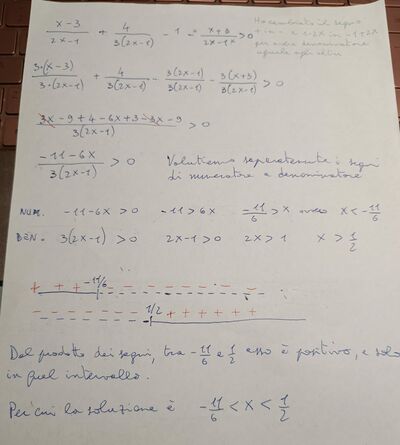 (x-3)/(2x-1) + 4/(3(2x-1)) - 1 - (x+3)/(2x-1) > 0
Ho cambiato il segno
+ in - e 1-2x in -1+2x
per avere denominatore
uguale agli altri
3·(x-3)/(3·(2x-1)) + 4/(3(2x-1)) - 3(2x-1)/(3(2x-1)) - 3(x+3)/(3(2x-1)) > 0
(3x - 9 + 4 - 6x + 3 - 3x - 9)/(3(2x-1)) > 0
(-11-6x)/(3(2x-1)) > 0 Valutiamo separatamente i segni
di numeratore e denominatore
NUM. -11-6x > 0 -11 > 6x -11/6 > x ovvero x < -11/6
DEN. 3(2x-1) > 0 2x-1 > 0 2x > 1 x > 1/2
+ + + + -11/6 - - - - - - - -
- - - - - - - 1/2 + + + + + +
Dal prodotto dei segni, tra -11/6 e 1/2 esso è positivo, e solo
in quel intervallo.
Per cui la soluzione è -11/6 < x < 1/2